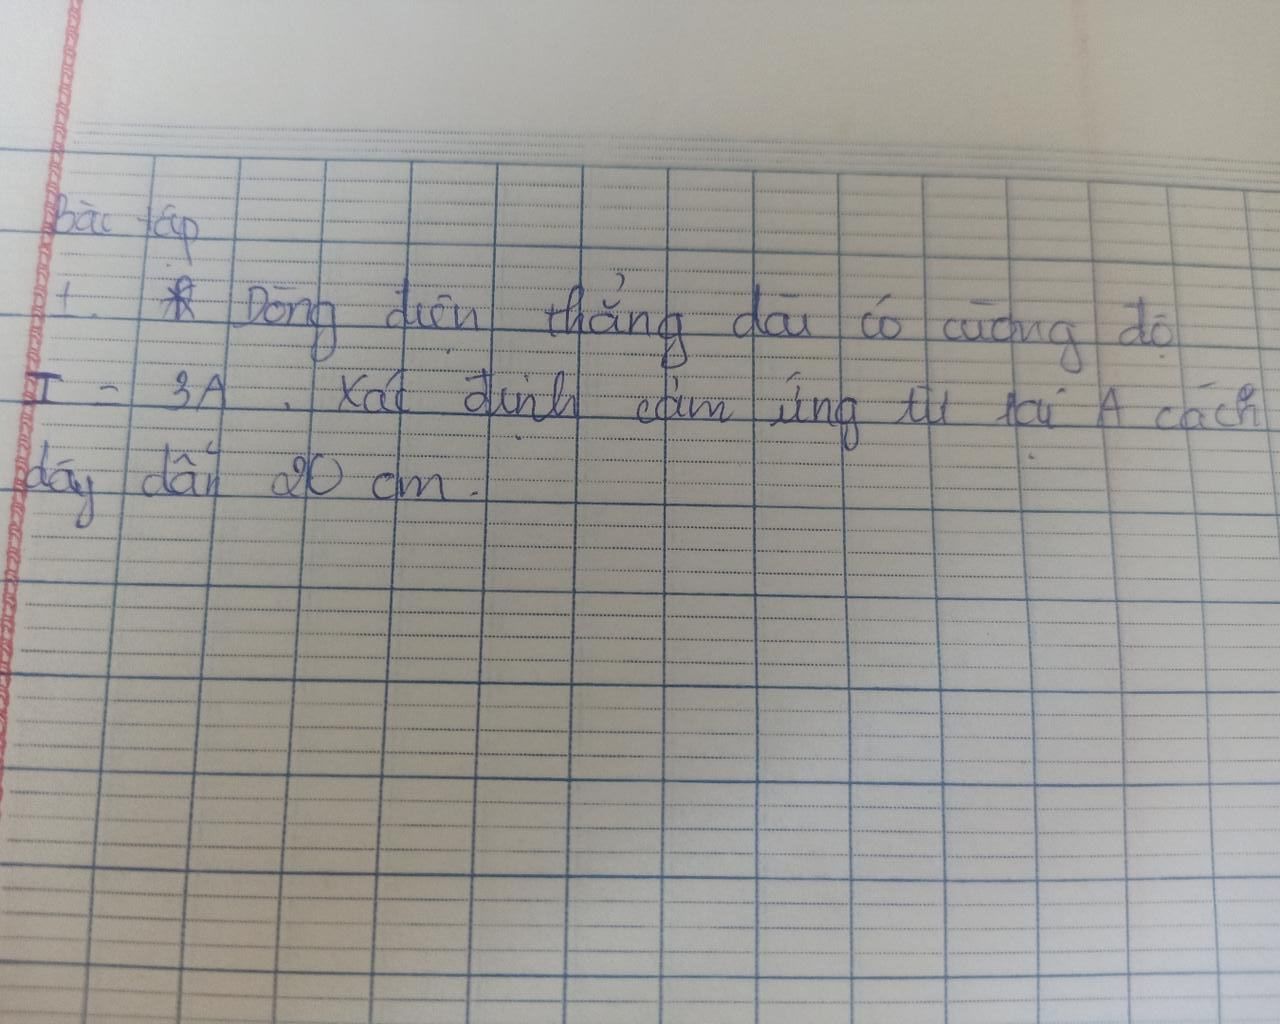 Bài tập
1. Dòng điện thẳng dài có cường độ
I = 3A . Xác định cảm ứng từ tại A cách
dây dẫn 20 cm.